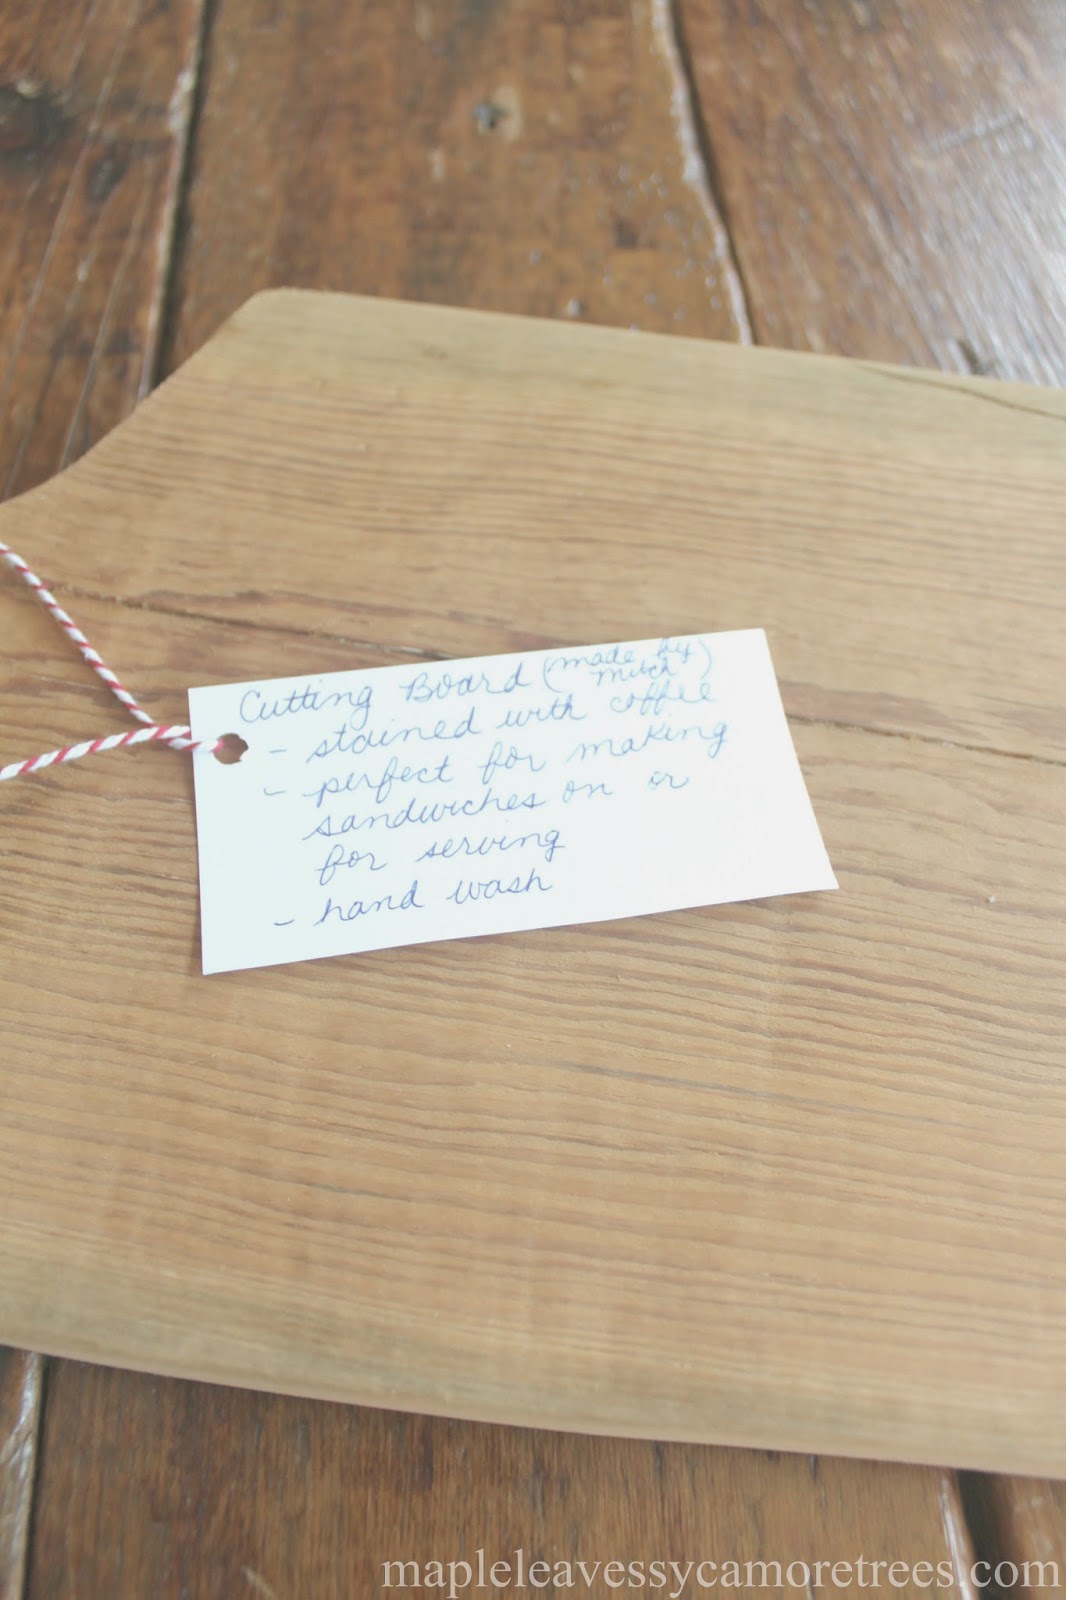 Cutting Board (made by
Mitch)
- stained with coffee
- perfect for making
sandwiches on or
for serving
- hand wash
mapleleavessycamoretrees.com